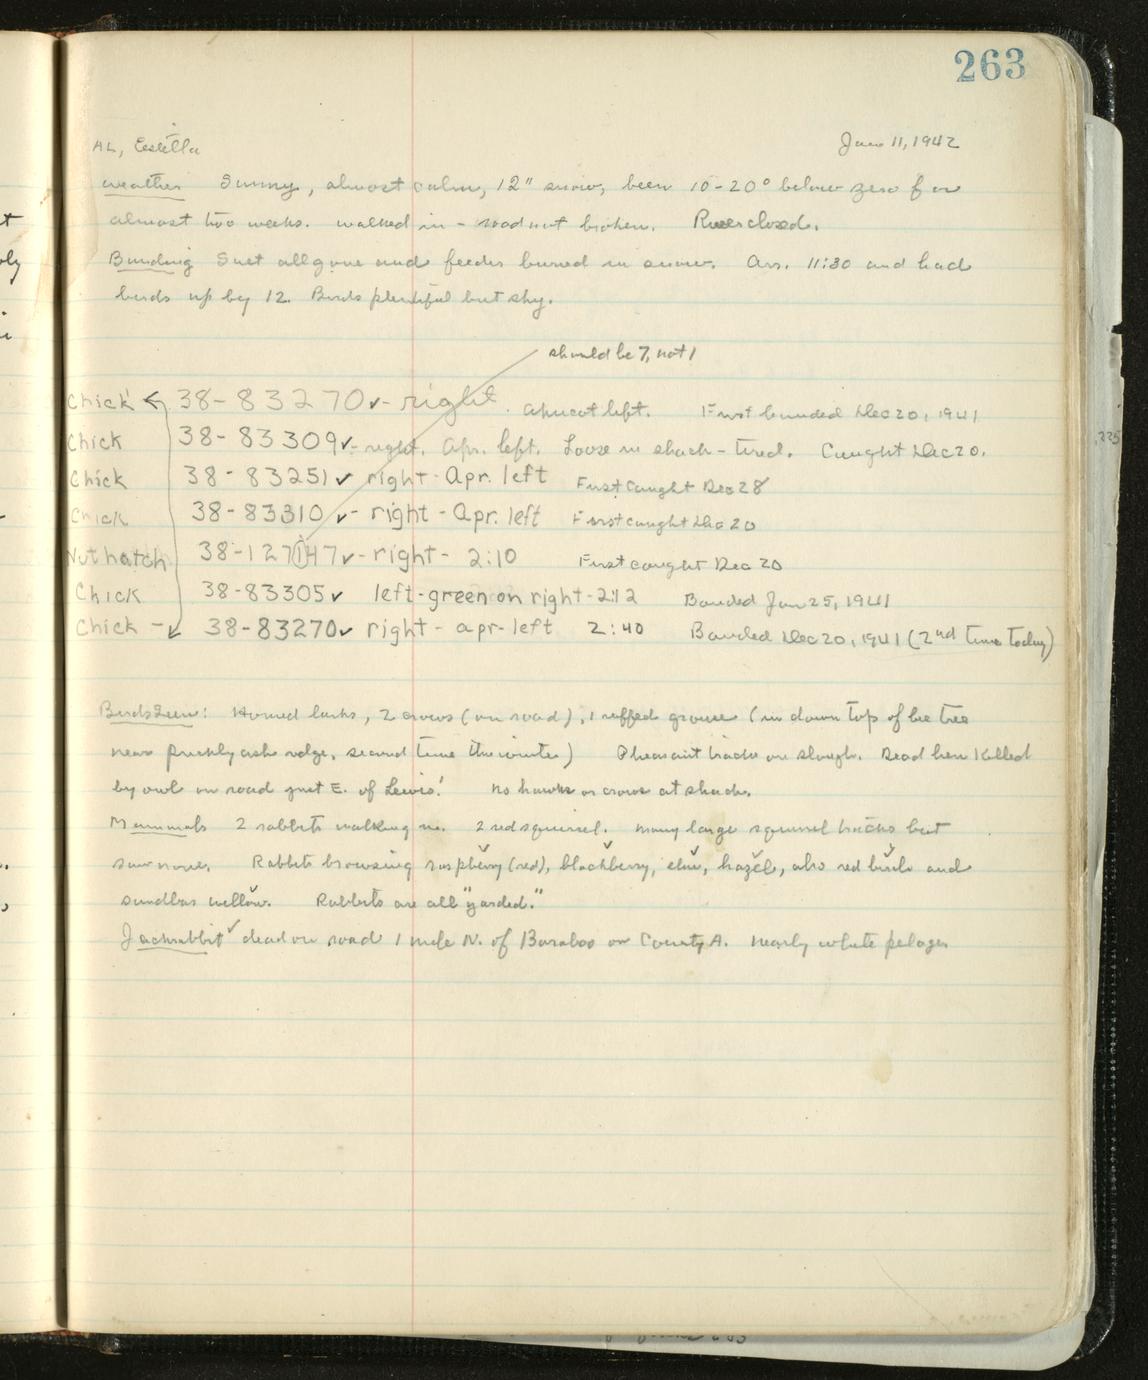 263
AL, Estella Jan 11, 1942
weather Sunny, almost calm, 12" snow, been 10-20° below zero for
almost two weeks. walked in - road not broken. River closed.
Banding Suet all gone and feeder buried in snow. Arr. 11:30 and had
birds up by 12. Birds plentiful but shy.
should be 7, not 1
Chick 38-83270 ✓- right. apricot left. First banded Dec 20, 1941
Chick 38-83309 ✓- right. Apr. left. Loose in shack - tired. Caught Dec 20.
Chick 38-83251 ✓ right - Apr. left First caught Dec 28
Chick 38-83310 ✓- right - Apr. left First caught Dec 20
Nuthatch 38-127147 ✓- right - 2:10 First caught Dec 20
Chick 38-83305 ✓ left - green on right - 2:12 Banded Jan 25, 1941
Chick - 38-83270 ✓ right - apr - left 2:40 Banded Dec 20, 1941 (2nd time today)
Birds Seen: Horned larks, 2 crows (on road), 1 ruffed grouse (in down top of bee tree
near prickly ash ridge, second time this winter) Pheasant tracks on slough. Dead hen killed
by owl on road just E. of Lewis'. No hawks or crows at shack.
Mammals 2 rabbits walking in. 2 red squirrel. Many large squirrel tracks but
saw none. Rabbits browsing raspberry (red), blackberry, elm, hazel, also red birch and
sandbar willow. Rabbits are all "yarded."
Jackrabbit ✓ dead on road 1 mile N. of Baraboo on County A. nearly white pelage.